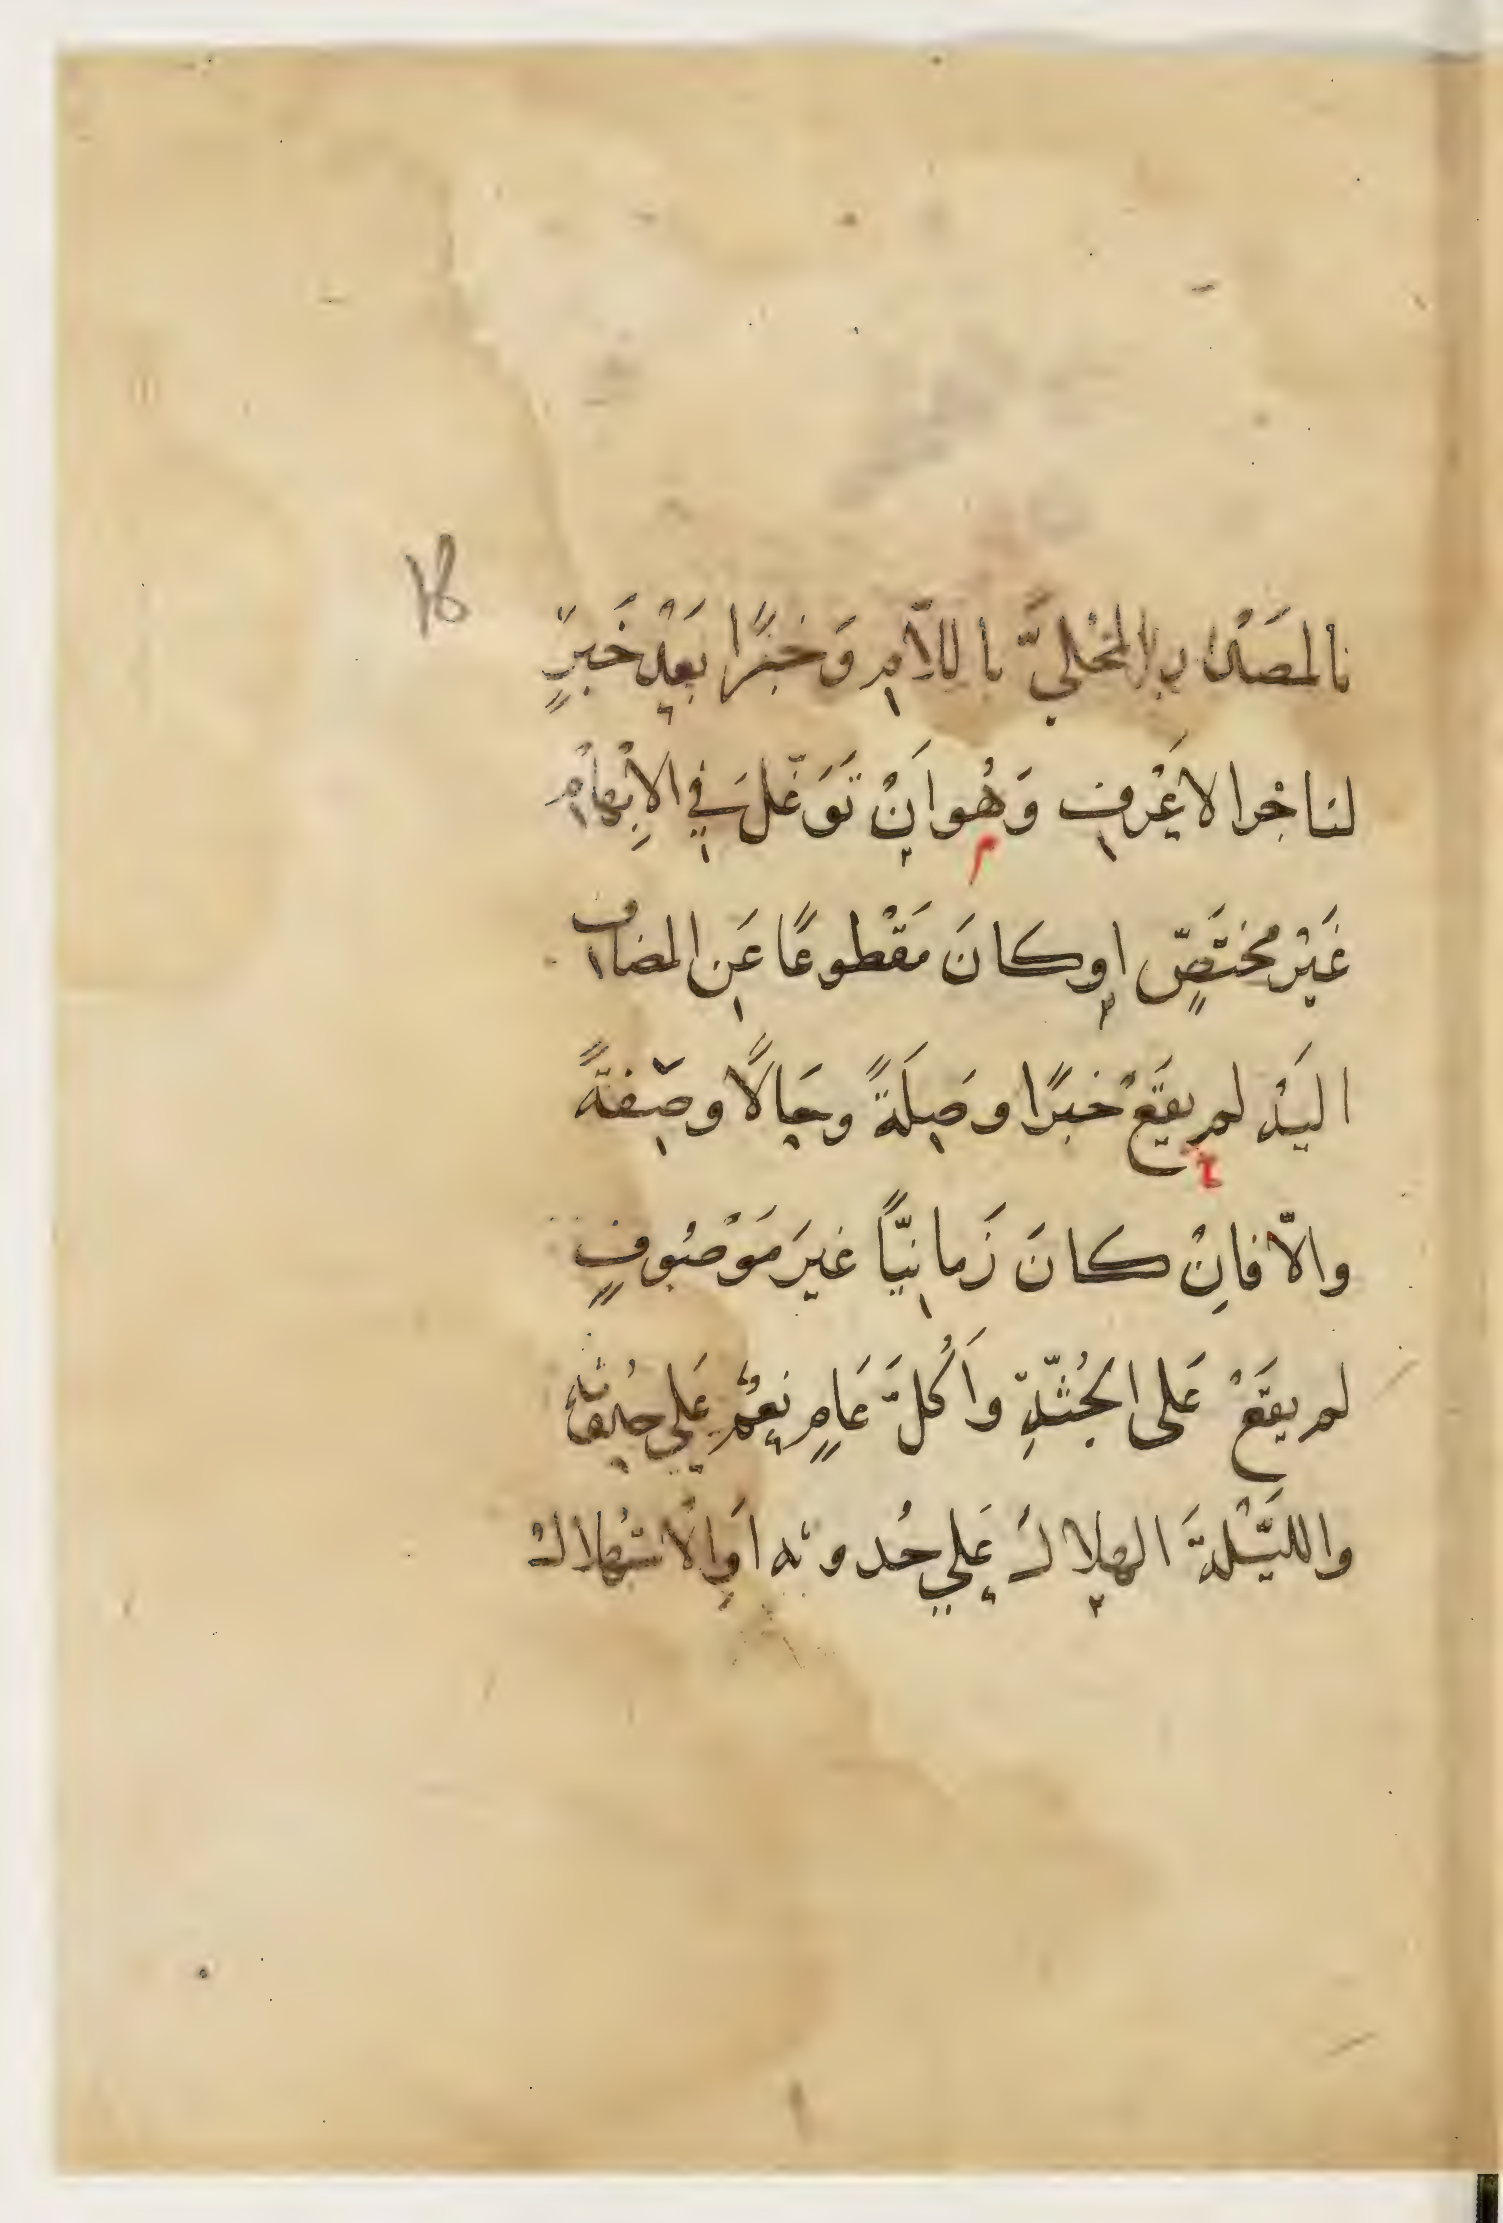 18
بالمصدر المحلىّ باللاّمِ وَخبرًا بَعْد خَبَرٍ
لتاخرا لا عْرفِ وَهُو اَنْ تَوَغّلَ في الاِبْهامِ
غَيْر مختَصٍّ او كانَ مَقْطوعًا عَن المضاف
اليَهْ لم يقَعْ خبرًا وصِلَةً وحَالًا وصِفةً
والاّ فاِنْ كانَ زَمانيّاً غيرَ مَوْصُوفٍ
لم يقَعْ عَلى الجُثّةِ واَكُلَّ عَامٍ نعَمٌ عَلى
والليّلةَ الهلاكَ عَلي حُدوثه اَوِ الاسْتهلاك